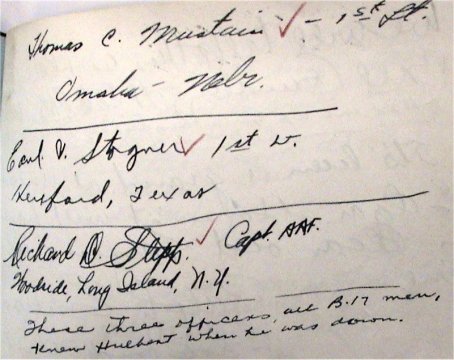 Thomas C. Mustain ✓ - 1st Lt.
Omaha - Nebr.
Earl V. Stogner ✓ 1st Lt.
Hereford, Texas
Richard O. Stepp. ✓ Capt. AAF.
Woodside, Long Island, N.Y.
These three officers, all B.17 men,
knew Hulbert when he was down.